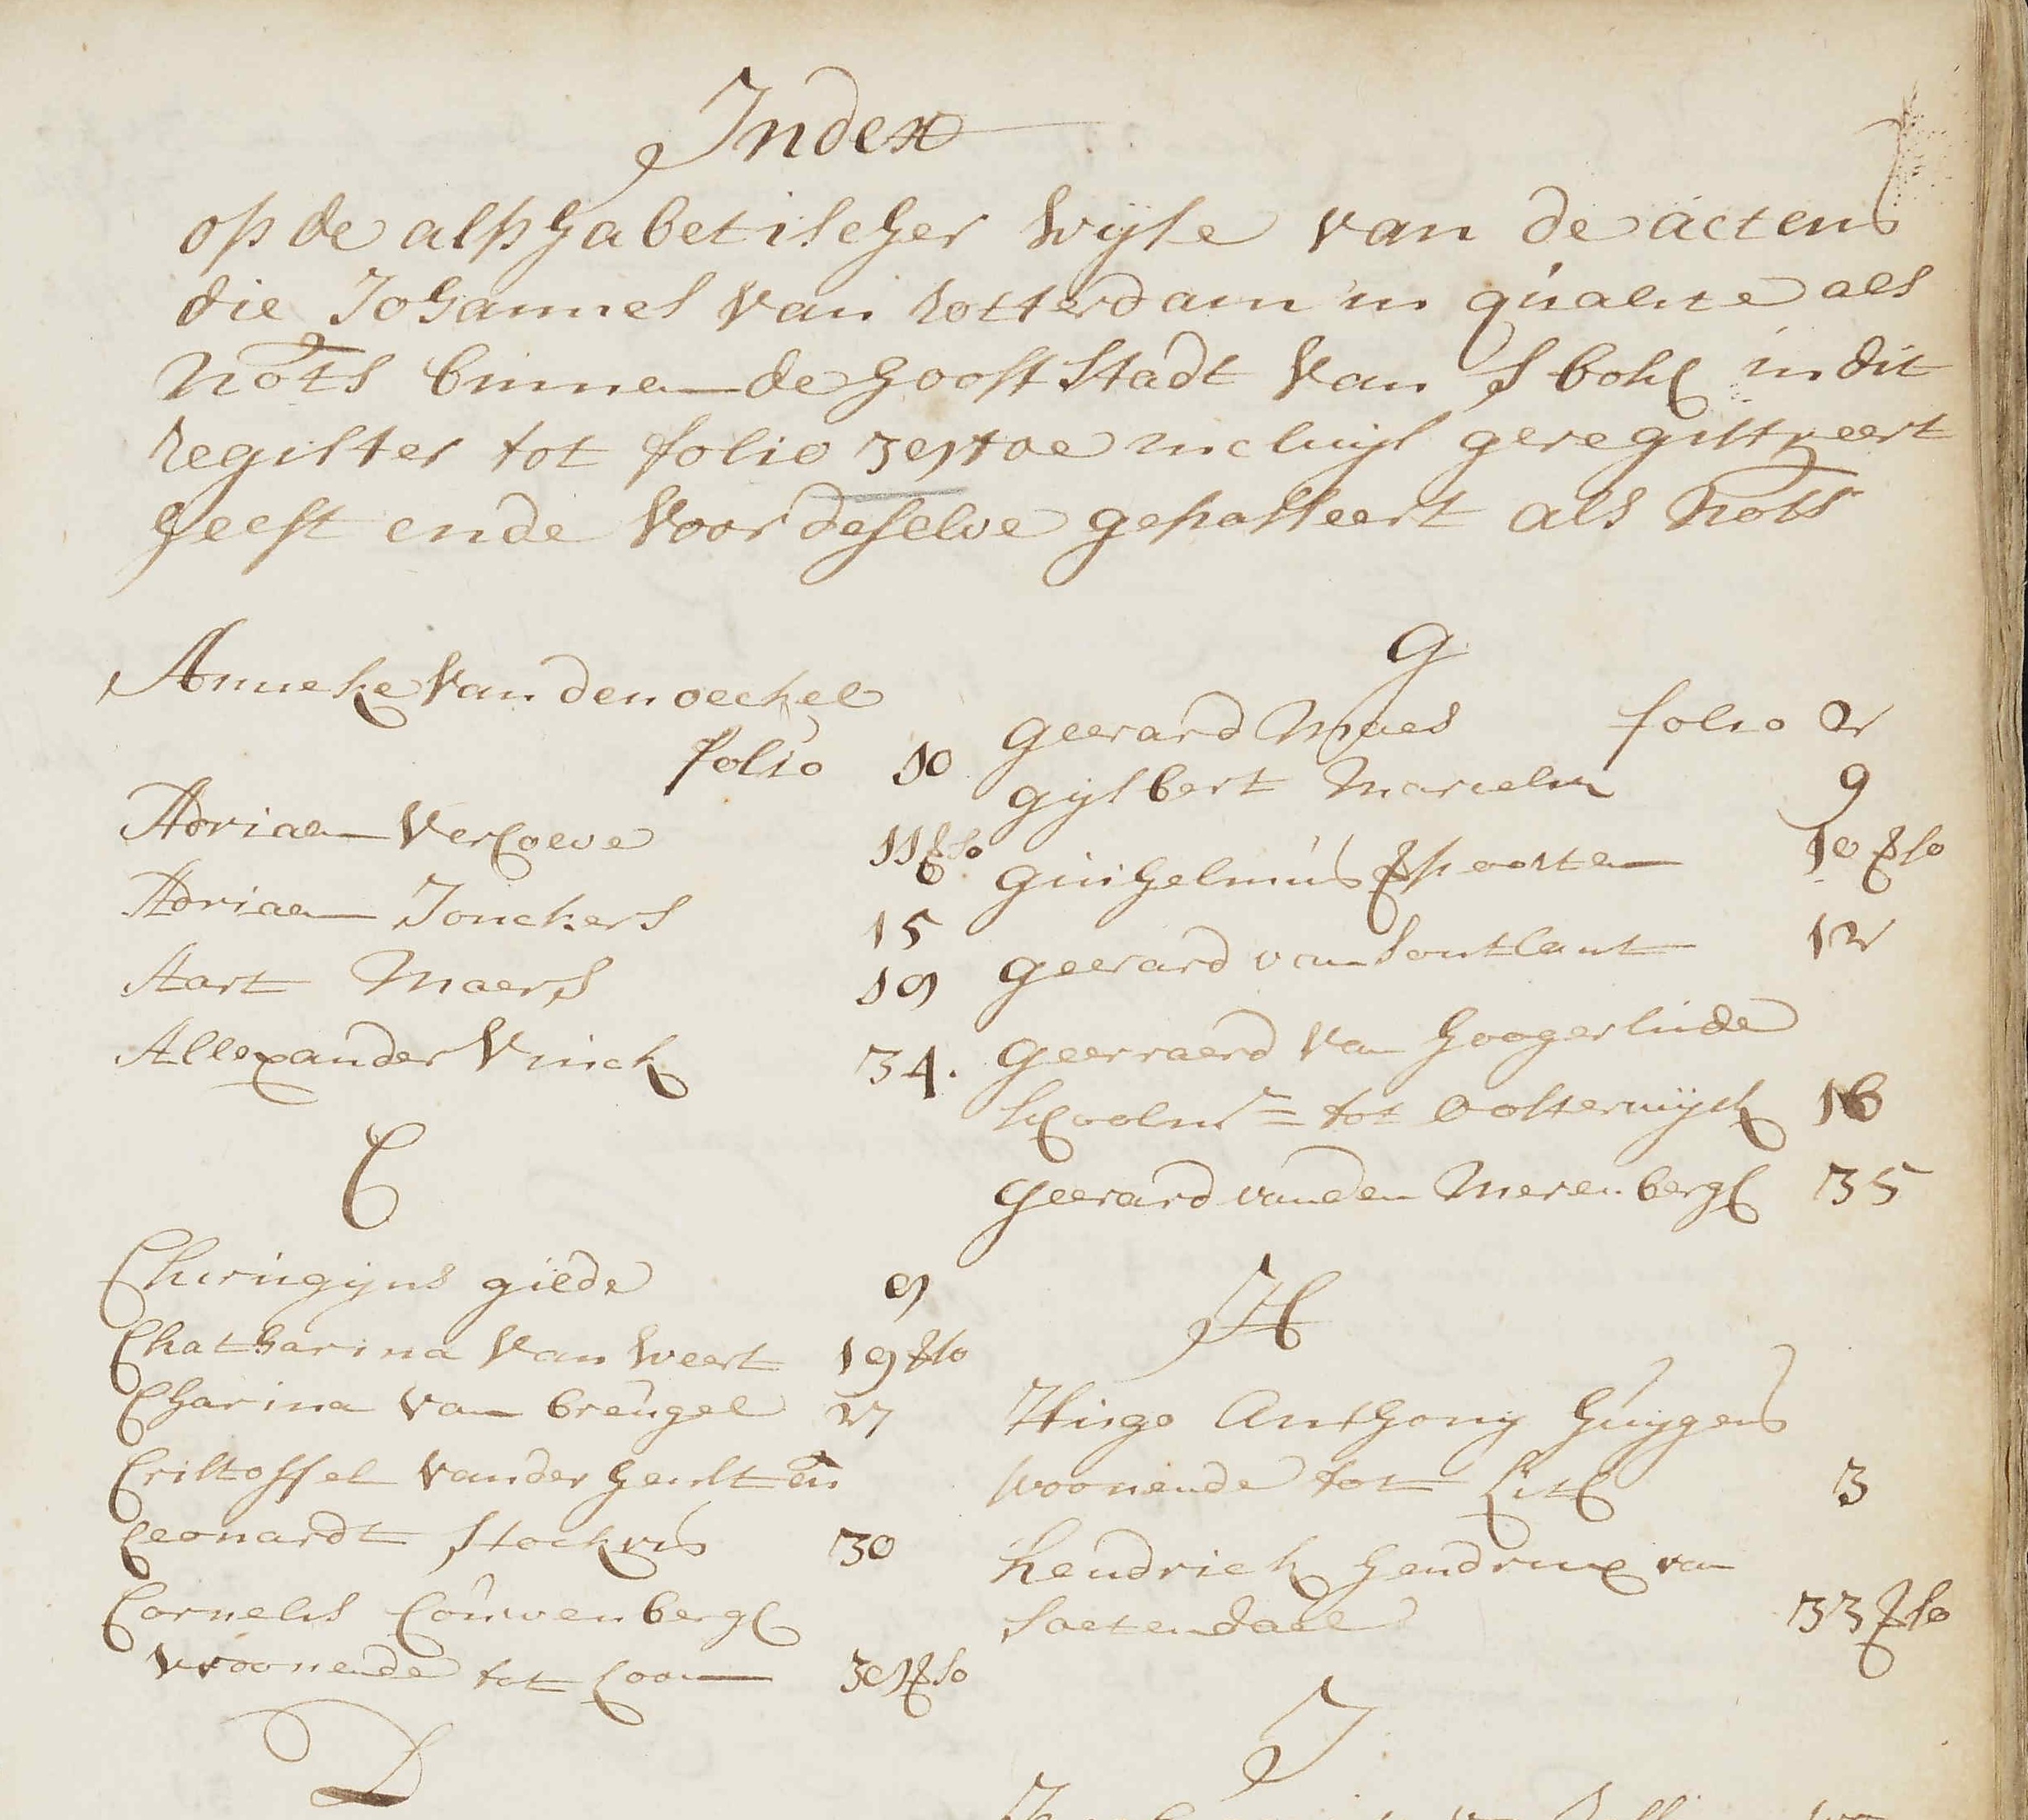 Index
op de alphabetischer wijse van de acten
die Johannes van rotterdam in qualite als
nots binnen de hooft stadt van s bosch in dit
register tot folio 39 toe incluijs geregistreert
heeft ende voor deselve gepasseert als nots
Anneke van den oeckel
folio 10
Adriaen Verhoeve 11 vso
Adriaen Jonckers 15
Aart Maers 19
Allexander Vinck 34.
C
Chirugijns gilde 9
Chatharina van weert 19 vso
Charina van breugel 27
Cristoffel vander henst en
Leonardt stockvis 30
Cornelis Couwenbergh
woonende tot Loon 39 vso
D
G
geerard Maes folio 2
gijsbert Marcelis 9
guihelmus 10 vso
geerard van Soutlant 12
geerraerd van hoogerlinde
schoolmr tot Oosterwijck 16
geerard vanden Merenbergh 35
H
Hugo Anthony huijgens
woonende tot Lith 3
hendrick hendricx van
Soetendael 33 vso
J